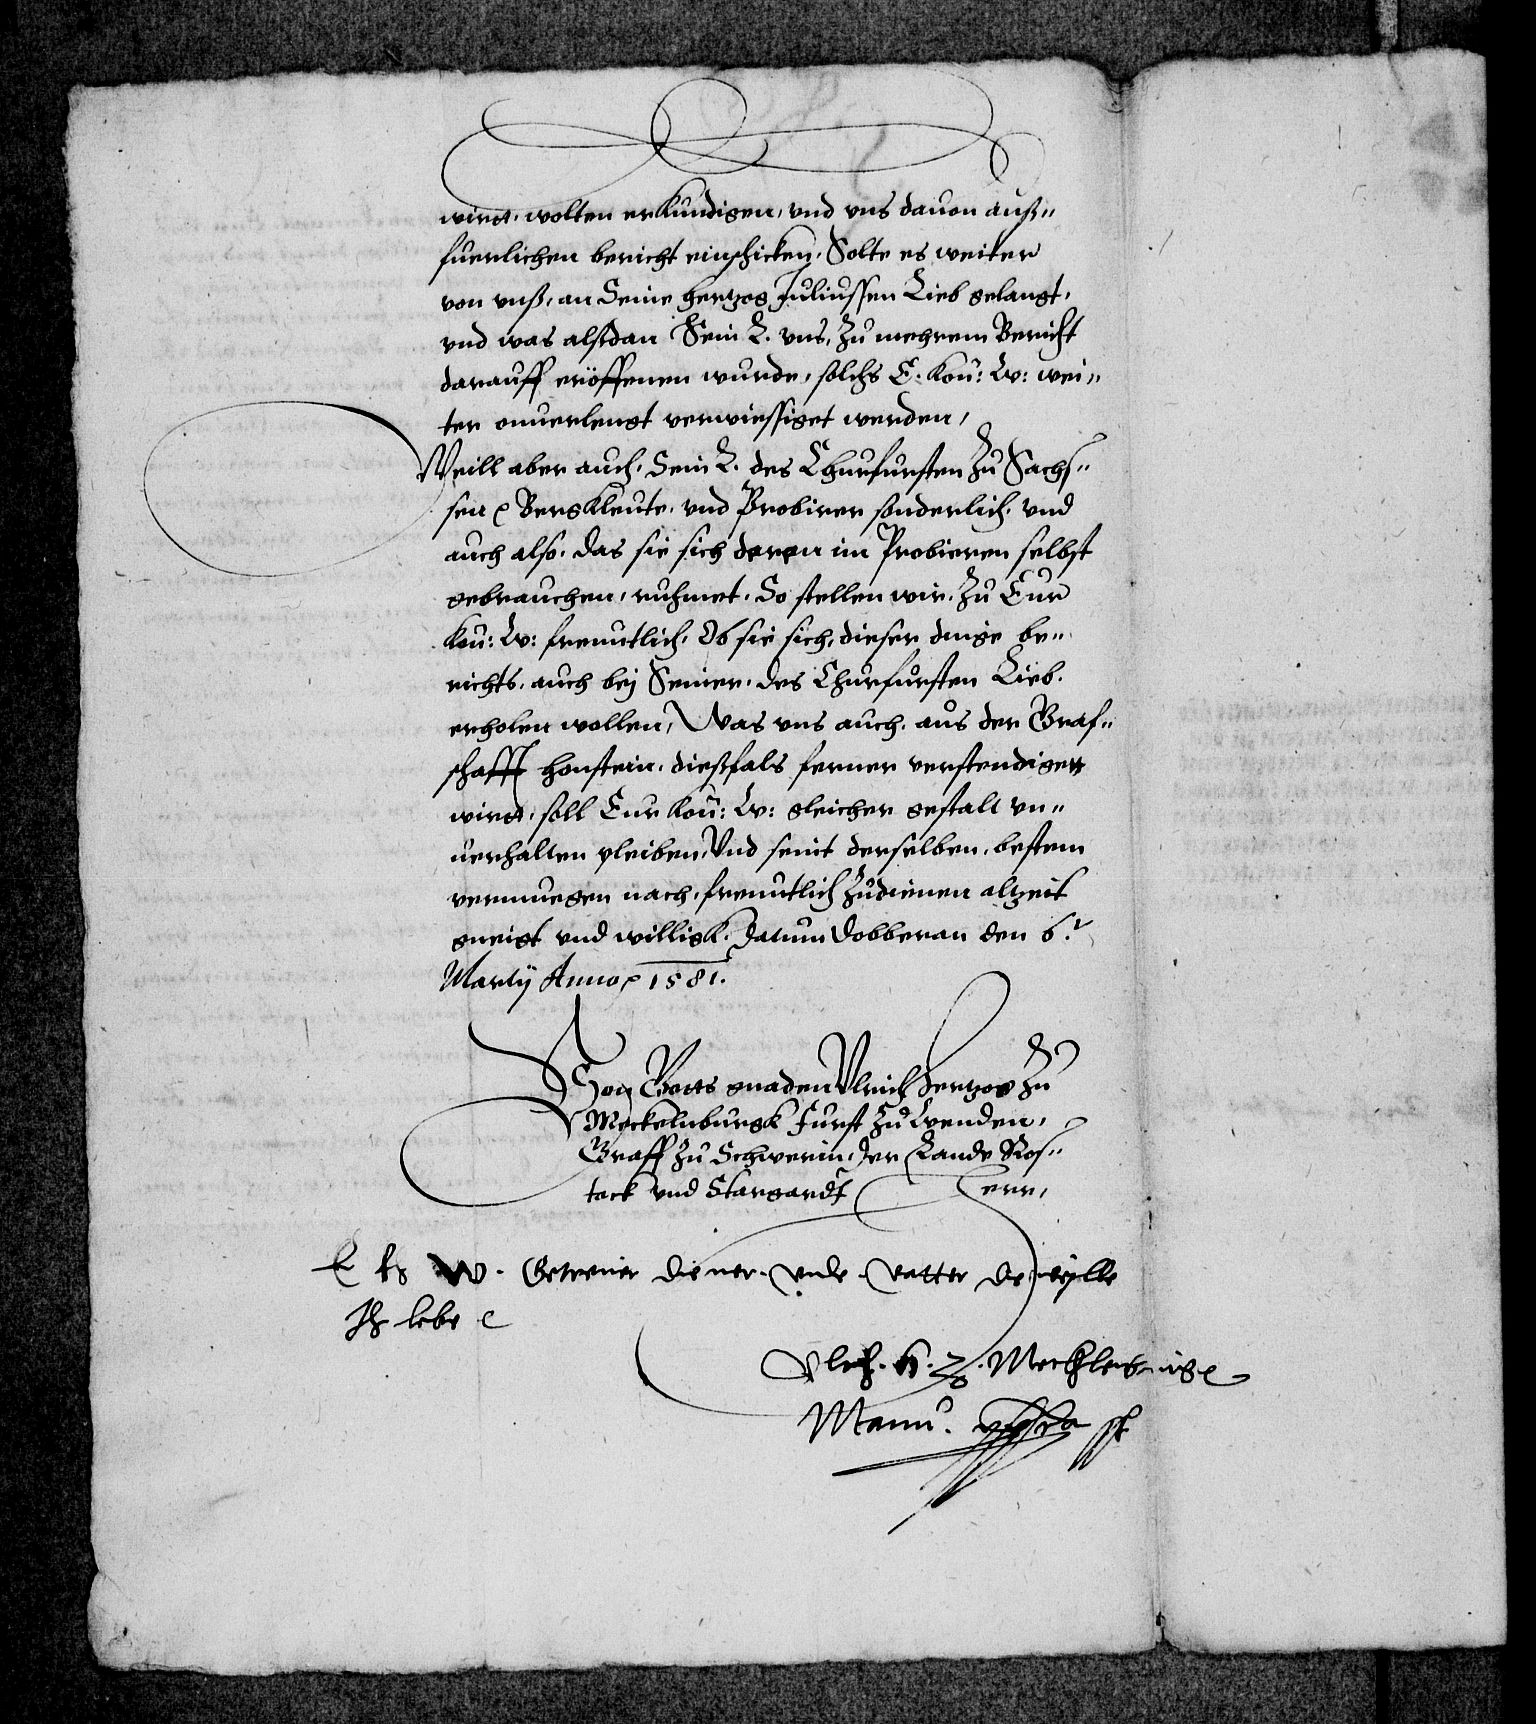 wirdt, wolten erkundigen, vnd vns dauon auß„
fuerlichen bericht einschicken, Solte es weiter
von vnß, an Seine hertzog Juliussen Lieb gelangt,
vnd was alßdan Sein L. vns, zu mehrem Bericht
darauff eröffenen wurde, solchs E. Kon: W: wei„
ter onuerlengt verwissiget werden,
Weill aber auch, Sein L. des Churfursten zu Sachs„
sen Bergkleute, vnd Probirer sonderlich, vnd
auch also, das sie sich deren im Probieren selbst
gebrauchen, ruhmet, So stellen wir, zu Eur
Kon: W: freuntlich, Ob sie sich, dieser dinge be„
richts, auch bey Seiner, des Churfursten Lieb.
erholen wollen, Was vns auch, aus der Graf„
schafft Honstein, dießfals ferner verstendiget
wirdt, soll Eur Kon: W: gleicher gestalt vn„
uerhalten pleiben, Vnd seint derselben, bestem
vermuegen nach, freuntlich zudienen altzeit
gneigt vnd willigk, Datum Dobberan den 6.
Martij Anno 1581.
Von Gotts gnaden Vlrich Hertzog zu
Meckelnburgk Furst zu Wenden,
Graff zu Schwerin, der Lande Ros„
tock vnd Stargardt Herr,
E K W. Getreuer diener vnde Vatter de wylle
Ich lebe
Vlrich. H. z. Mecklenburg
Manu. ppria sst